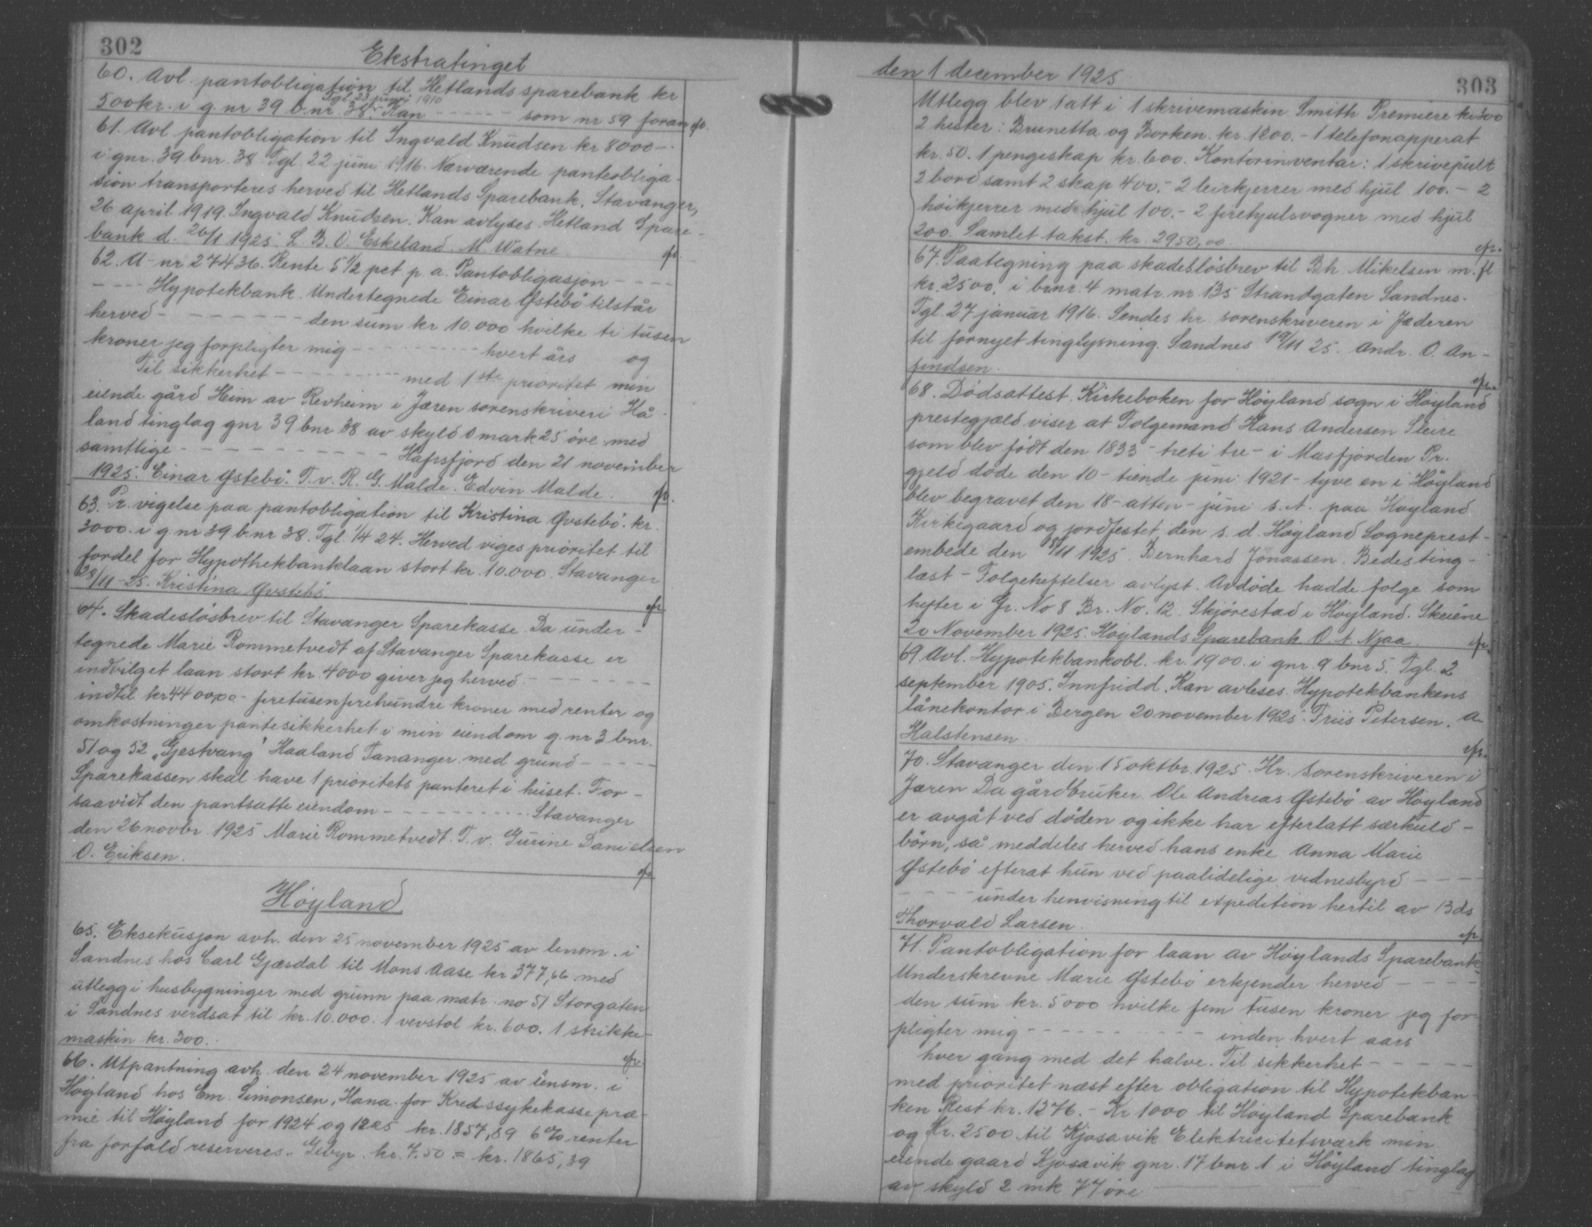 302
Ekstratinget
60. Avl. pantobligation til Hetlands sparebank kr
Tgl. 23 juni 1910
500 kr. i g. nr 39 b. nr 38. Kan - - - - som nr 59 foran
61. Avl pantobligation til Ingvald Knudsen kr 8000 -.
i gnr. 39 bnr. 38 Tgl 22 juni 1916. Nærværende panteobliga-
sion transporteres herved til Hetlands Sparebank, Stavanger,
26 april 1919 Ingvald Knudsen. Kan avlyses Hetland Spare-
bank d. 26/11 1925. L. B. O. Eskeland. M Watne
62. A - nr 27436. Rente 5 1/2 pct p. a. Pantobligasjon - - - -
- - - Hypotekbank. Undertegnede Einar Østebö tilstår
herved - - - - - - - den sum kr 10 000 hvilke ti tusen
kroner jeg forpligter mig - - - - - - - hvert års og
Til sikkerhet - - - - - - - med 1ste prioritet min
eiende gård Heim av Revheim i Jæren sorenskriveri Hå-
land tinglag gnr 39 bnr 38 av skyld 0 mark 25 öre med
samtlige - - - - - - - - - - Hafrsfjord den 21 november
1925. Einar Østebö. T. v. R. G. Malde. Edvin Malde.
63. Pr. vigelse paa pantobligation til Kristina Øvstebö. kr.
3000. i g nr 39 b. nr 38. Tgl. 1/4 24. Herved viges prioritet til
fordel for Hypothekbanklaan stort kr. 10.000. Stavanger
28/11 - 25. Kristina Øvstebö.
64. Skadeslösbrev til Stavanger Sparekasse. Da under-
tegnede Marie Rommetvedt af Stavanger Sparekasse er
indvilget laan stort kr. 4000 giver jeg herved - - - - - -
indtil kr 4400,00 - firetusenfirehundre kroner med renter og
omkostninger pantesikkerhet i min eiendom g. nr 3 bnr.
51 og 52 "Gjestvang" Haaland Tananger med grund - - - - -
Sparekassen skal have 1 prioritets panteret i huset. For-
saavidt den pantsatte eiendom - - - - - - - - Stavanger
den 26 novbr 1925 Marie Rommetvedt. T. v. Gurine Danielsen
O. Eriksen.
Høyland.
65. Eksekusjon avh. den 25 november 1925 av lensm. i
Sandnes hos Carl Gjæsdal til Mons Aase kr 377,66 med
utlegg i husbygninger med grunn paa matr. no 51 Storgaten
i Sandnes verdsat til kr. 10.000. 1 vevstol kr. 600. 1 strikke-
maskin kr. 300.
66. Utpantning avh. den 24 november 1925 av lensm. i
Høyland hos Em. Simonsen, Hana for Kredssykekasse præ-
mie til Høyland for 1924 og 1925 kr. 1857,89 6% renter
fra forfald reserveres. Gebyr kr. 7.50 = kr. 1865,39
303
den 1 december 1925
Utlegg blev tatt i 1 skrivemaskin Smith Premiere kr 300
2 hester: Brunetta og Borken. kr. 1200. - 1 telefonapperat
kr. 50. 1 pengeskap kr. 600. Kontorinventar: 1 skrivepult
2 bord samt 2 skap 400. - 2 leirkjerrer med hjul 100. - 2
höikjerrer med hjul 100. - 2 firehjulsvogner med hjul
200. Samlet takst. kr. 2950,00
67. Paategning paa skadeslösbrev til Bh. Mikelsen m. fl
kr. 2500. i bnr. 4 matr. nr 135 Strandgaten Sandnes.
Tgl. 27 januar 1916. Sendes hr. sorenskriveren i Jæderen
til fornyet tinglysning. Sandnes 19/11 25. Andr. O. An-
findsen.
68. Dödsattest. Kirkeboken for Høyland sogn i Høyland
prestegjæld viser at Folgemand Hans Andersen Skeie
som blev født den 1833 - treti tre - i Masfjorden Pr.
gjeld döde den 10 - tiende juni 1921 - tyve en i Høyland
blev begravet den 18 - atten - juni s. A. paa Høyland
Kirkegaard og jordfestet den s. d. Høyland Sogneprest-
embede den /11 1925. Bernhard Jonassen. Bedes ting-
læst - Folgeheftelser avlyst. Avdøde hadde folge som
hefter i Gr. No 8 Br. No. 12 Skjörestad i Høyland. Skeiene
21 November 1925. Høylands Sparebank O. A. Njaa.
69 Avl. Hypotekbankobl. kr. 1900. i gnr. 9 bnr 5. Tgl. 2
september 1905. Innfridd. Kan avleses Hypotekbankens
lånekontor i Bergen 20 november 1925. Friis Petersen. A.
Halstensen
70. Stavanger den 15 oktbr. 1925. Hr. sorenskriveren i
Jæren Da gårdbruker Ole Andreas Østebö av Høyland
er avgåt ved döden og ikke har efterlatt særkuld-
börn, så meddeles herved hans enke Anna Marie
Østebö efterat hun ved paalidelige vidnesbyrd - - - -
- - - - under henvisning til expedition hertil av 13 ds
Thorvald Larsen.
71. Pantobligation for laan av Høylands Sparebank.
Underskrevne Marie Østebö erkjender herved - - - -
den sum kr. 5000 hvilke fem tusen kroner jeg for-
pligter mig - - - - - - - - inden hvert aars
hver gang med det halve. Til sikkerhet - - - -
med prioritet næst efter obligation til Hypotekban-
ken Rest kr. 1276. - Kr 1000 til Høyland Sparebank
og Kr. 2500 til Kjosavik Elektricitetsværk min
eiende gaard Kjosavik gnr. 17 bnr 1 i Høyland tinglag
av skyld 2 mk 77 öre